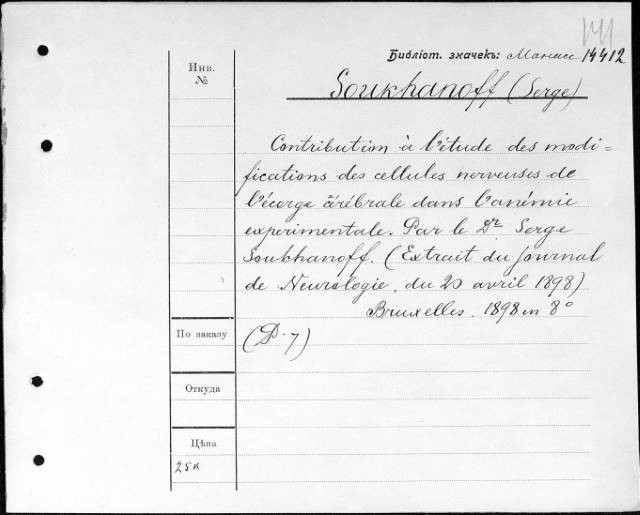 Библіот. значекъ: 14412
Инв.
№
Soukhanoff (Serge)
Contribution à l'étude des modi=
fications des cellules nerveuses de
l'écorge cérébrale dans l'anémie
experimentale. Par le Dr Serge
Soukhanoff. (Extrait du Journal
de Neurologie, du 20 avril 1898)
Bruxelles. 1898 in 8°
По заказу
(D-7)
Откуда
Цѣна
25к